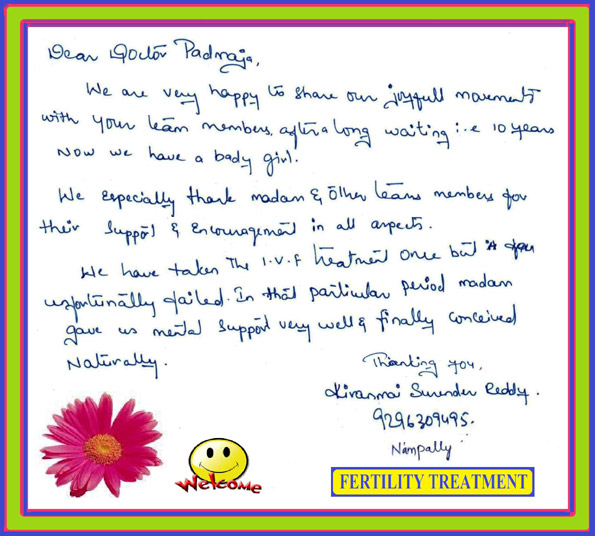 Dear Doctor Padmaja,
We are very happy to share our joyfull movement
with your team members, after a long waiting i.e 10 years
Now we have a bady girl.
We especially thank madam & other teams members for
their support & Encouragement in all aspects.
We have taken The I.V.F treatment once but
unfortunally failed. In that particular period madam
gave us mental support very well & finally conceived
Naturally.
Thanking you,
Kiranmai Surender Reddy.
9296309495.
Nampally
Welcome
FERTILITY TREATMENT